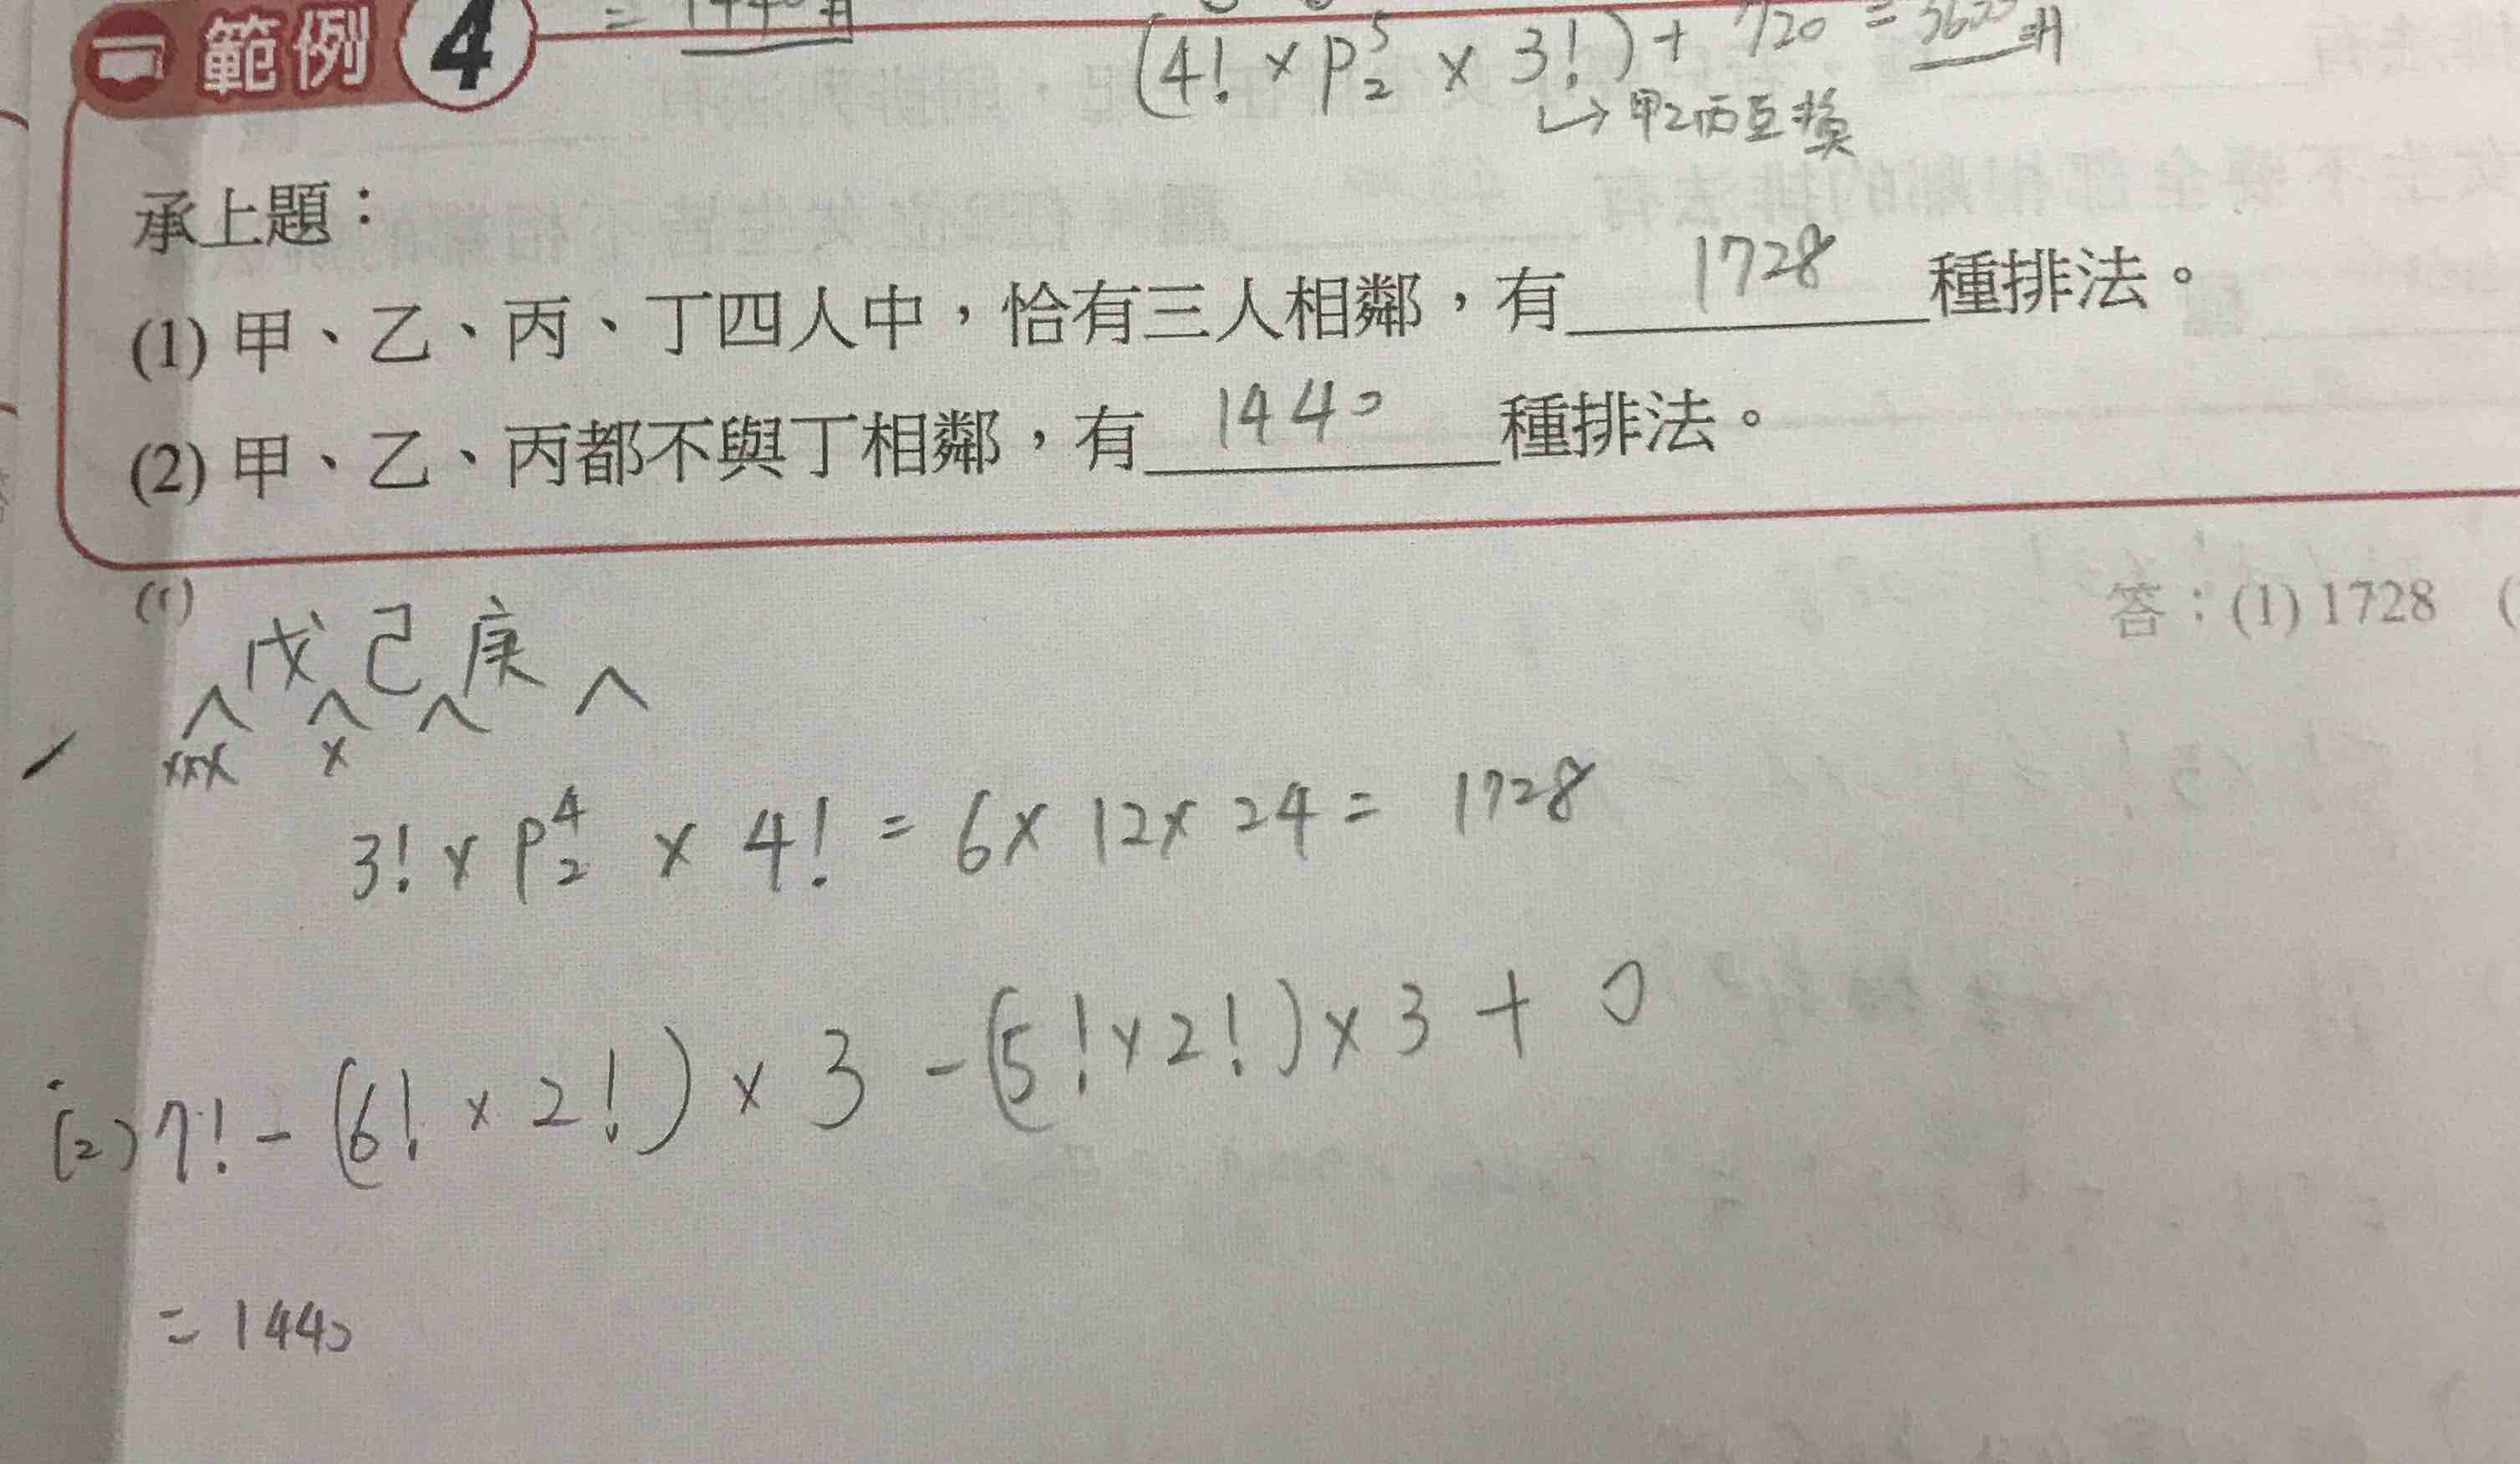 範例 4
(4! × P⁵₂ × 3!) + 720 =
↳ 甲乙丙互換
承上題：
(1) 甲、乙、丙、丁四人中，恰有三人相鄰，有 1728 種排法。
(2) 甲、乙、丙都不與丁相鄰，有 1440 種排法。
答：(1) 1728 (
(1)
戊 己 庚
xxx x
3! × P⁴₂ × 4! = 6 × 12 × 24 = 1728
(2) 7! - (6! × 2!) × 3 - (5! × 2!) × 3 + 0
= 1440